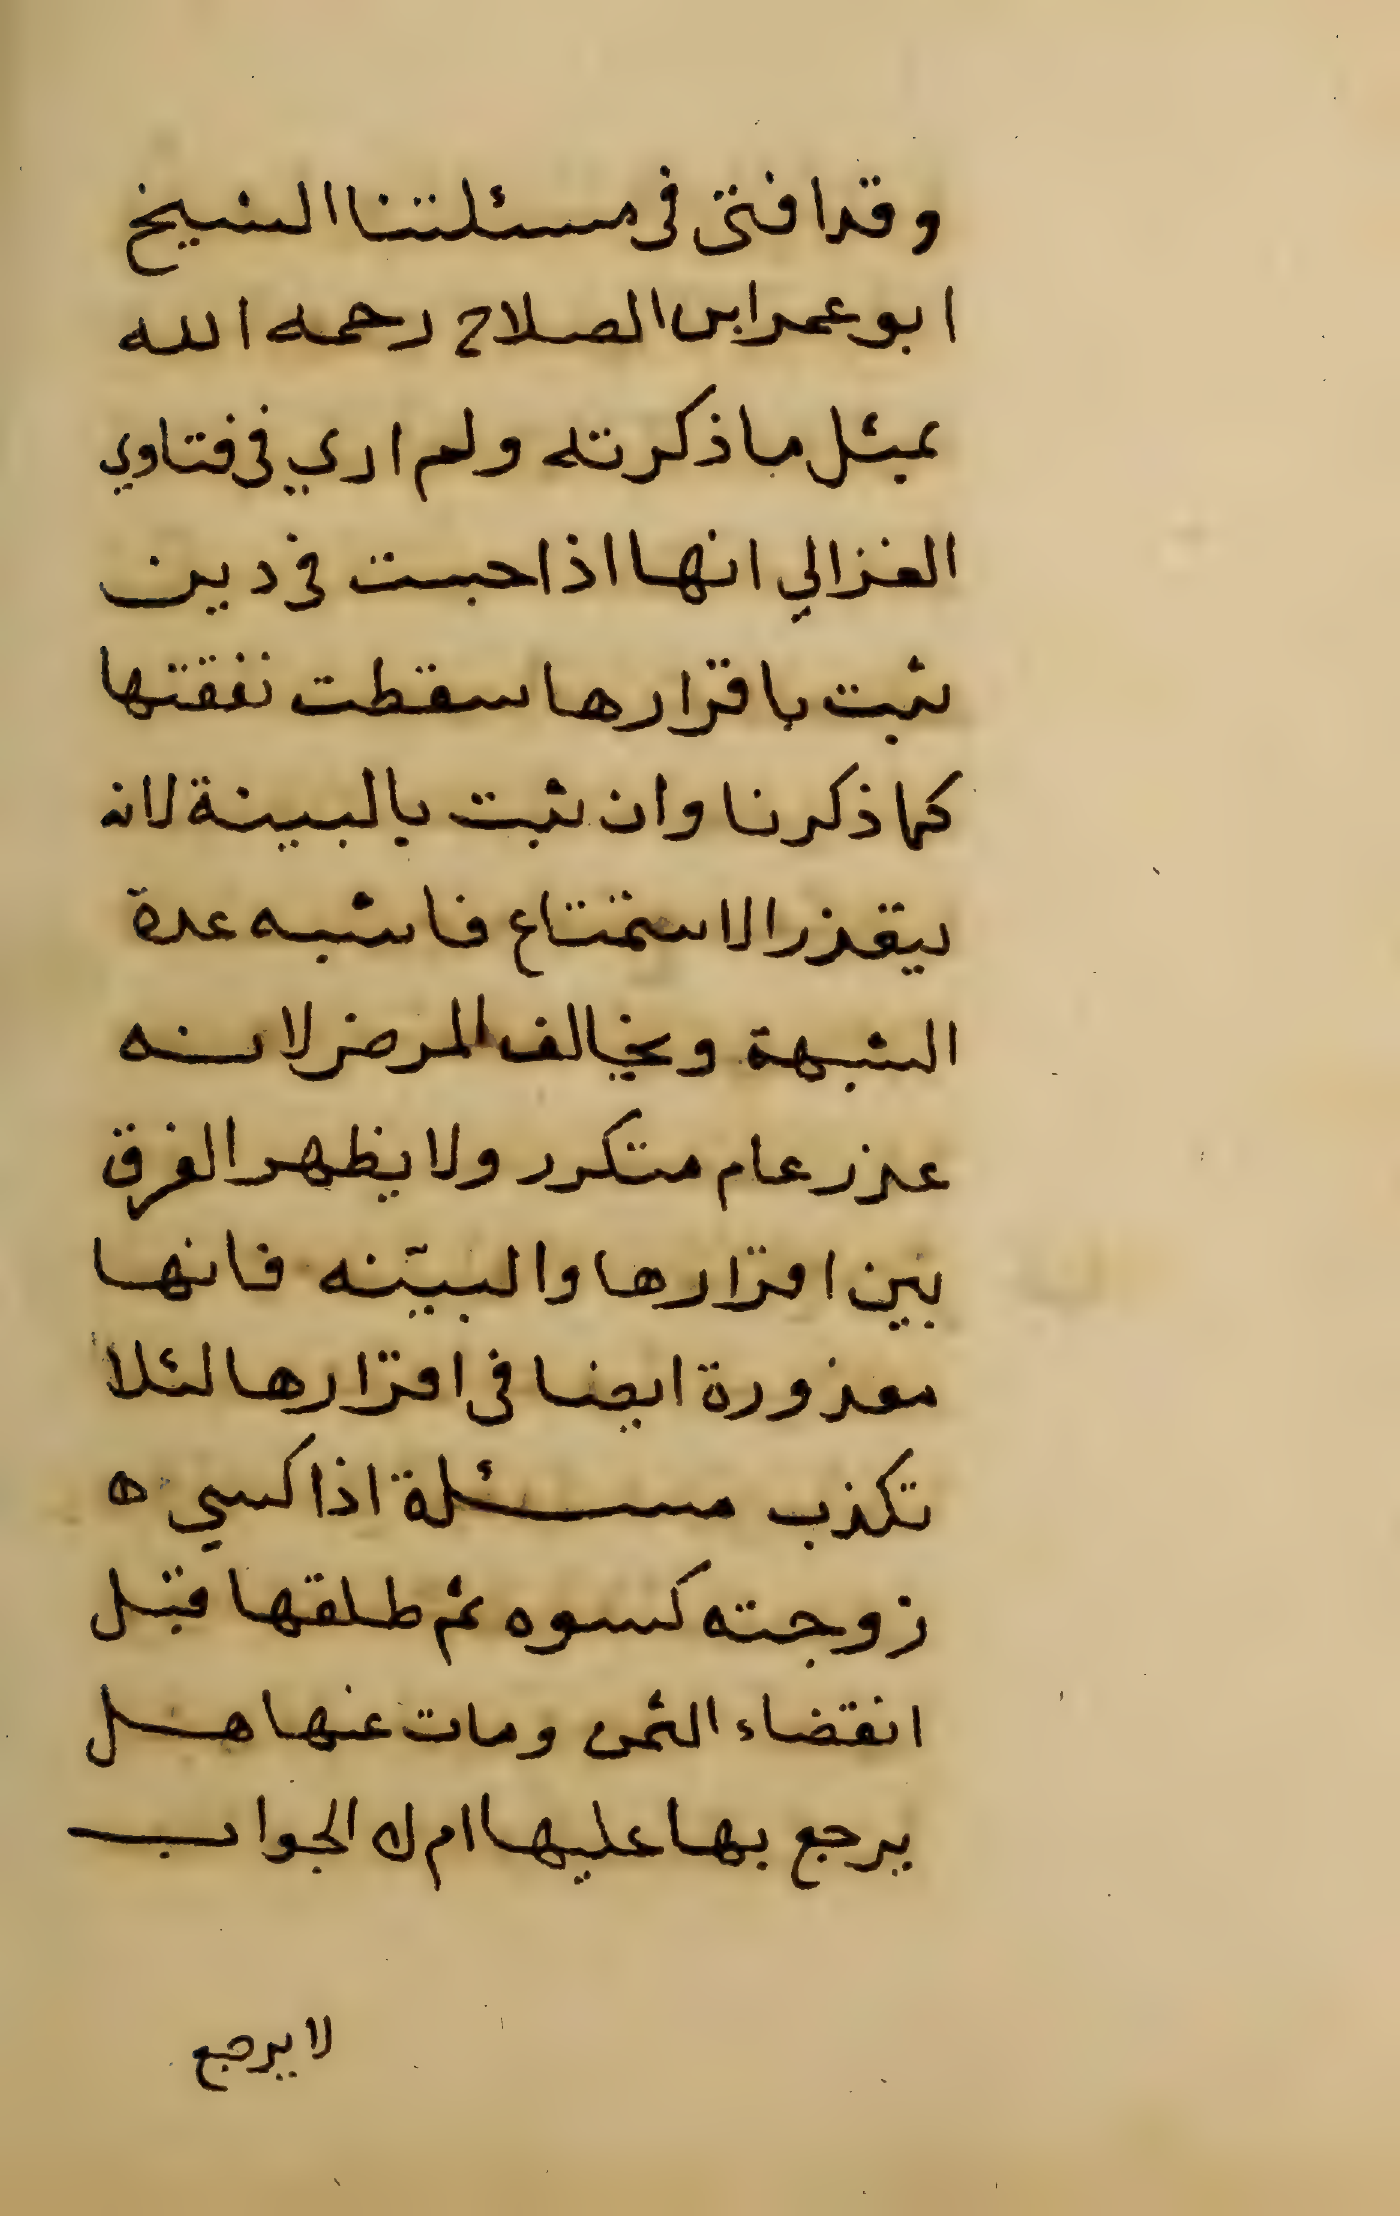 وقد افتى فى مسئلتنا الشيخ
ابو عمر ابن الصلاح رحمه الله
بمثل ما ذكرته ولم ارى فى فتاوي
الغزالي انها اذا حبست فى دين
ثبت باقرارها سقطت نفقتها
كما ذكرنا وان ثبت بالبينة لانه
يتعذر الاستمتاع فاشبه عدة
الشبهة ويخالف المرض لانه
عذر عام متكرر ولا يظهر الفرق
بين اقرارها والبينه فانها
معذورة ايضا فى اقرارها لئلا
تكذب مسئلة اذا كسي ه
زوجته كسوه ثم طلقها قبل
انقضاء الثمن ومات عنها هل
يرجع بها عليها ام لا الجواب
لا يرجع